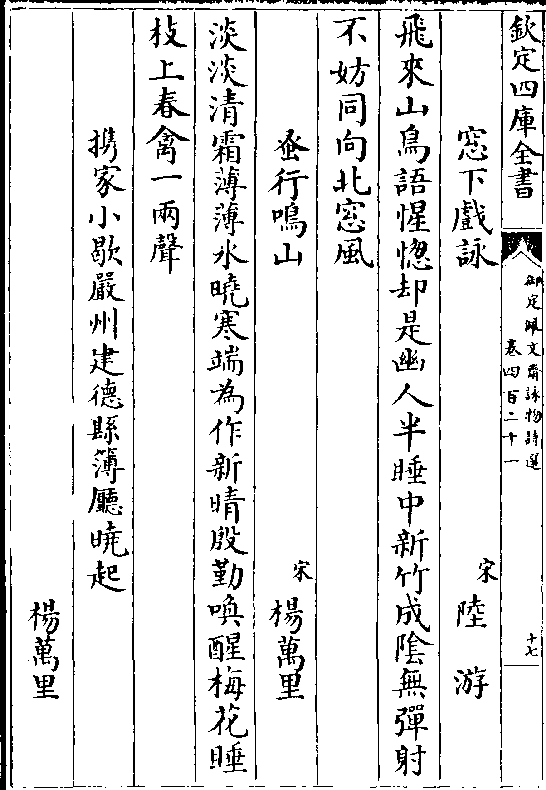 欽定四庫全書
御定佩文齋詠物詩選
卷四百二十一
十七
窓下戲詠
宋 陸游
飛來山鳥語惺惚却是幽人半睡中新竹成隂無彈射
不妨同向北窓風
蚤行鳴山
宋 楊萬里
淡淡清霜薄薄氷曉寒端為作新晴殷勤喚醒梅花睡
枝上春禽一兩聲
攜家小歇嚴州建德縣簿廳曉起
楊萬里